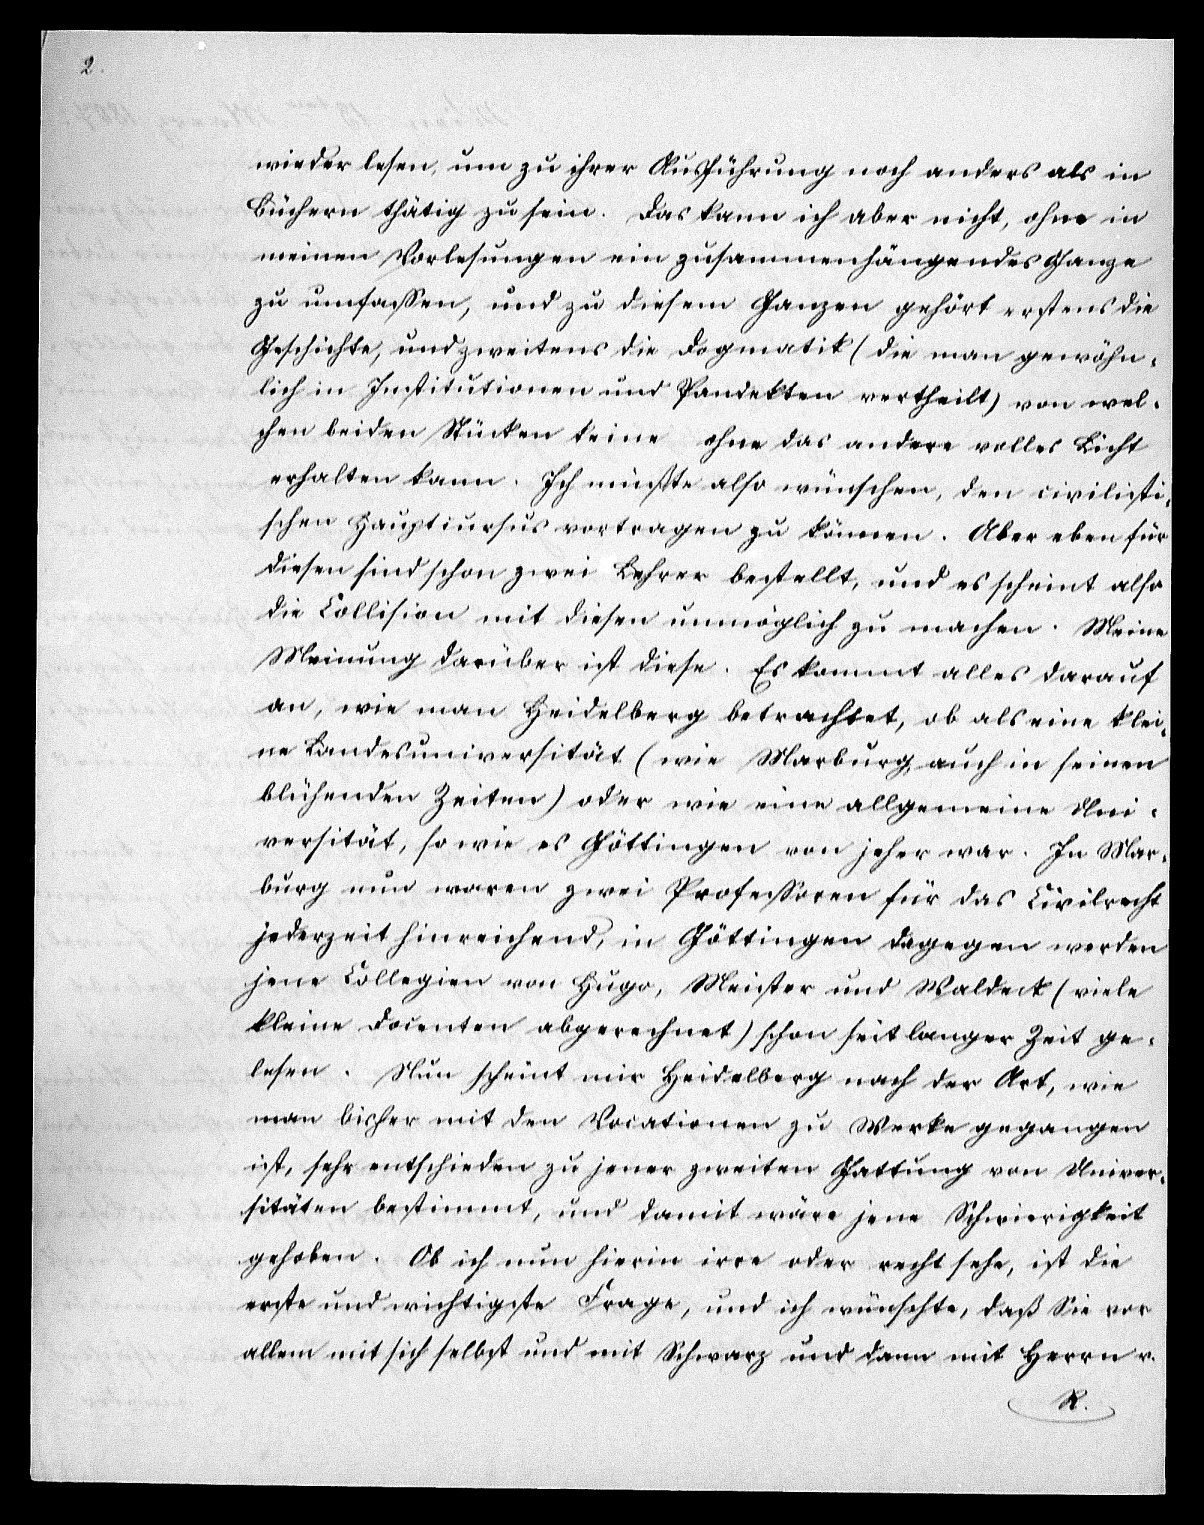 2.
wieder lesen, um zu ihrer Ausführung noch anders als in
Büchern thätig zu sein. Das kann ich aber nicht, ohne in
meinen Vorlesungen ein zusammenhängendes Ganze
zu umfassen, und zu diesem Ganzen gehört erstens die
Geschichte, und zweitens die Dogmatik (die man gewöhn-
lich in Institutionen und Pandekten vertheilt) von wel-
chen beiden Stücken keine ohne das andere volles Licht
erhalten kann. Ich müßte also wünschen, den civilisti-
schen Hauptcursus vortragen zu können. Aber eben für
diesen sind schon zwei Lehrer bestellt, und es scheint also
die Collision mit diesen unmöglich zu machen. Meine
Meinung darüber ist diese. Es kommt alles darauf
an, wie man Heidelberg betrachtet, ob als eine klei-
ne Landesuniversität (wie Marburg auch in seinen
blühenden Zeiten) oder wie eine allgemeine Uni-
versität, so wie es Göttingen von jeher war. In Mar-
burg nun waren zwei Professoren für das Civilrecht
jederzeit hinreichend, in Göttingen dagegen werden
jene Collegien von Hugo, Meister und Waldeck (viele
kleine Docenten abgerechnet) schon seit langer Zeit ge-
lesen. Nun scheint mir Heidelberg nach der Art, wie
man bisher mit den Vocationen zu Werke gegangen
ist, sehr entschieden zu jener zweiten Gattung von Univer-
sitäten bestimmt, und damit wäre jene Schwierigkeit
gehoben. Ob ich nun hierin irre oder recht sehe, ist die
erste und wichtigste Frage, und ich wünschte, daß Sie vor
allem mit sich selbst und mit Schwarz und dann mit Herrn v.
R.